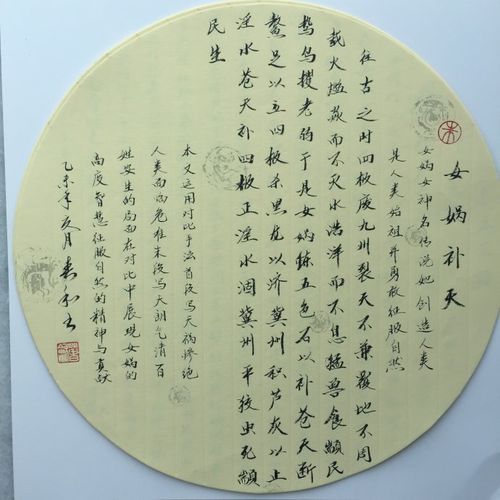 女娲补天
女娲女神名传说她创造人类
是人类始祖并勇敢征服自然
往古之时四极废九州裂天不兼覆地不周
载火爁焱而不灭水浩洋而不息猛兽食颛民
鸷鸟攫老弱于是女娲炼五色石以补苍天断
鳌足以立四极杀黑龙以济冀州积芦灰以止
淫水苍天补四极正淫水涸冀州平狡虫死颛
民生
本文运用对比手法首段写天祸惨绝
人类面临危在末段写天朗气清百
姓安生的局面在对比中展现女娲的
高度智慧征服自然的精神与贡献
乙未年夏月春和书